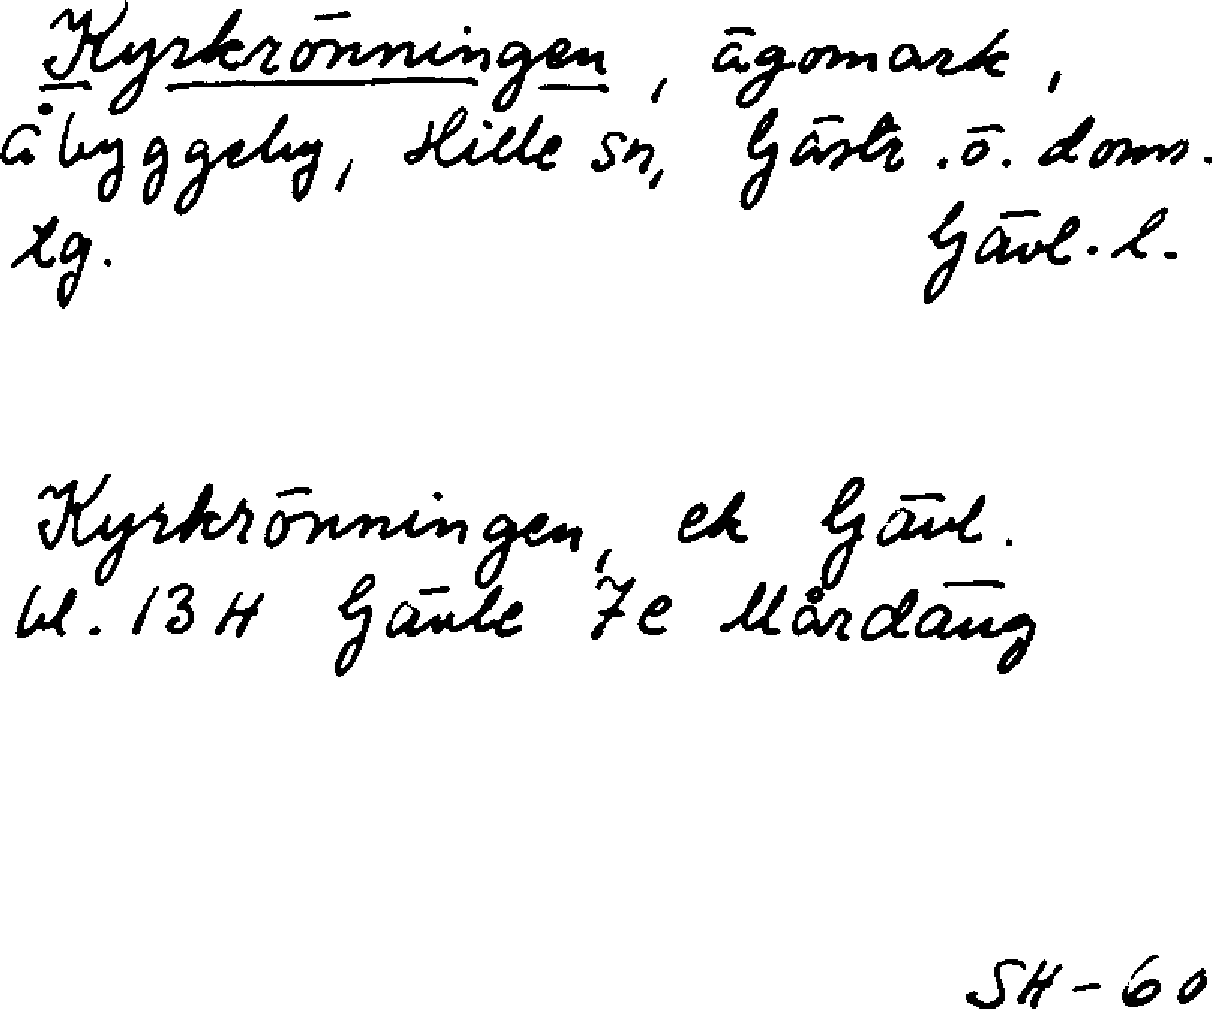 Kyrkrönningen, ägomark,
Åbyggeby, Hille sn, Gästr. ö. doms.
tg. Gävl. l.
Kyrkrönningen, ek Gävl.
bl. 13H Gävle 7e Mårdäng
SH-60